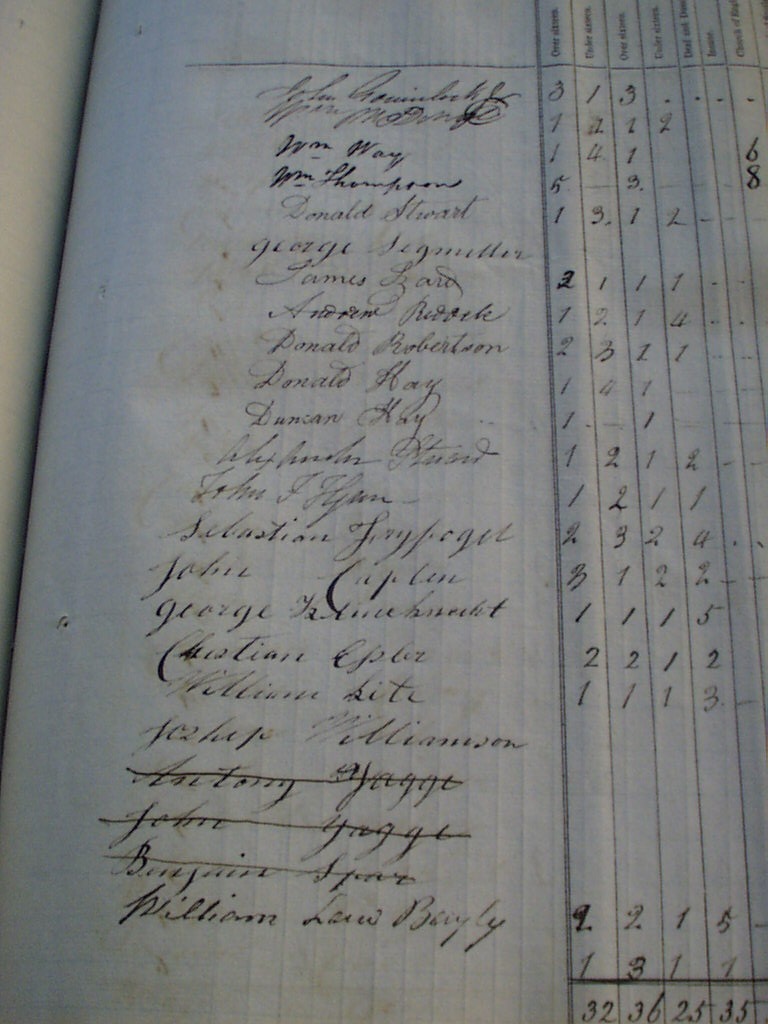 Over sixteen. Under sixteen. Over sixteen. Under sixteen. Deaf and Insane.
John 3 1 3 . . . .
Wm 1 2 1 2
Wm Way 1 4 1 6
Wm Thompson 5 3. 8
Donald Stwart 1 3. 1 2
george Segmiller
James Izard 2 1 1 1
Andrew 1 2 1 4
Donald Robertson 2 3 1 1
Donald Hay 1 4 1
Duncan Hay 1 1
Alexander 1 2 1 2
John F 1 2 1 1
Sebastian Fryfogel 2 3 2 4
John Caplin 3 1 2 2
george 1 1 1 5
Christian Epler 2 2 1 2
William Litt 1 1 1 3
Joship Williamson
Antony Yagge
John Yagge
Benjain Spar
William Law Bayly 2 2 1 5
1 3 1 1
32 36 25 35